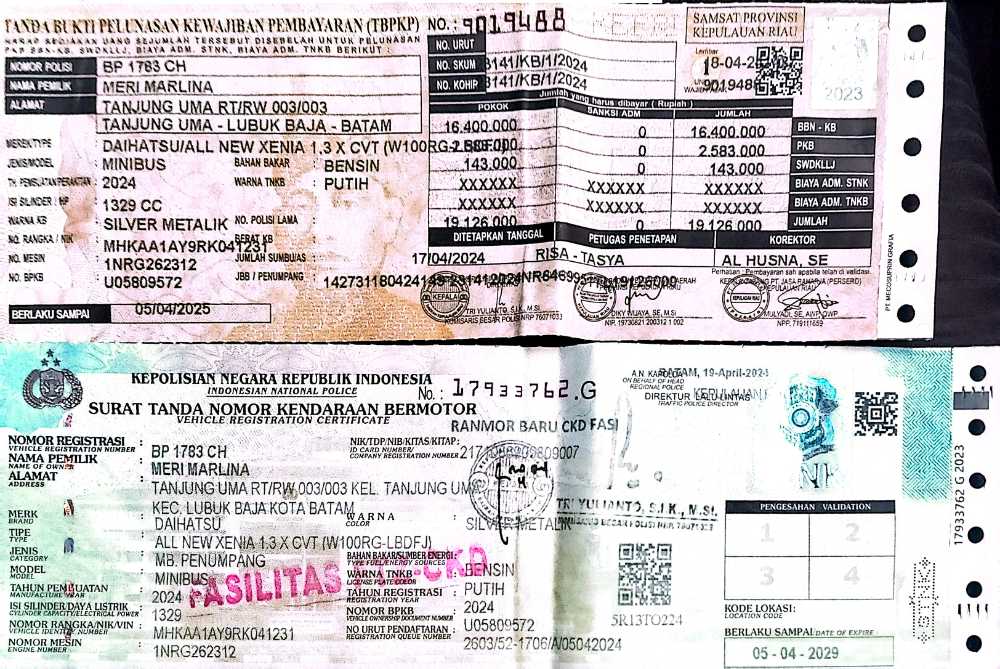 TANDA BUKTI PELUNASAN KEWAJIBAN PEMBAYARAN (TBPKP) NO.: 9019488
SAMSAT PROVINSI
KEPULAUAN RIAU
NOMOR POLISI : BP 1783 CH
NAMA PEMILIK : MERI MARLINA
ALAMAT : TANJUNG UMA RT/RW 003/003
TANJUNG UMA - LUBUK BAJA - BATAM
MEREK/TYPE : DAIHATSU/ALL NEW XENIA 1.3 X CVT
JENIS/MODEL : MINIBUS BAHAN BAKAR : BENSIN
2024 WARNA TNKB : PUTIH
ISI SILINDER / HP : 1329 CC
WARNA KB : SILVER METALIK NO. POLISI LAMA :
BERAT KB :
NO. RANGKA / NIK : MHKAA1AY9RK041231
NO. MESIN : 1NRG262312
NO. BPKB : U05809572 JBB / PENUMPANG :
BERLAKU SAMPAI : 05/04/2025
NO. URUT
NO. SKUM 141/KB/1/2024
NO. KOHIR 141/KB/1/2024
Jumlah yang harus dibayar ( Rupiah )
POKOK SANKSI ADM JUMLAH
16.400.000 0 16.400.000 BBN - KB
2.583.000 0 2.583.000 PKB
143.000 0 143.000 SWDKLLJ
XXXXXX XXXXXX XXXXXX BIAYA ADM. STNK
XXXXXX XXXXXX XXXXXX BIAYA ADM. TNKB
19.126.000 0 19.126.000 JUMLAH
DITETAPKAN TANGGAL PETUGAS PENETAPAN KOREKTOR
17/04/2024 RISA - TASYA AL HUSNA, SE
Perhatian : Pembayaran sah apabila telah di validasi.
Lembar
1
2023
KEPULAUAN RIAU
TRI YULIANTO, S.I.K., M.Si
KOMISARIS BESAR POLISI NRP 76071033
DIKY WIJAYA, SE, M.Si
NIP. 19730821 200312 1 002
NPP. 719111659
PT. MECOSUPRIN GRAFIA
KEPOLISIAN NEGARA REPUBLIK INDONESIA
INDONESIAN NATIONAL POLICE
No.: 17933762.G
SURAT TANDA NOMOR KENDARAAN BERMOTOR
VEHICLE REGISTRATION CERTIFICATE
RANMOR BARU CKD FASI
NOMOR REGISTRASI : BP 1783 CH
VEHICLE REGISTRATION NUMBER
NIK/TDP/NIB/KITAS/KITAP :
ID CARD NUMBER/
COMPANY REGISTRATION NUMBER
NAMA PEMILIK : MERI MARLINA
NAME OF OWNER
ALAMAT : TANJUNG UMA RT/RW 003/003 KEL. TANJUNG UMA
ADDRESS
KEC. LUBUK BAJA KOTA BATAM
MERK : DAIHATSU
BRAND
WARNA : SILVER METALIK
COLOR
TIPE : ALL NEW XENIA 1.3 X CVT (W100RG-LBDFJ)
TYPE
JENIS : MB. PENUMPANG
CATEGORY
BAHAN BAKAR/SUMBER ENERGI : BENSIN
TYPE FUEL/ENERGY SOURCES
MODEL : MINIBUS
MODEL
WARNA TNKB : PUTIH
LICENSE PLATE COLOR
TAHUN PEMBUATAN : 2024
MANUFACTURE YEAR
TAHUN REGISTRASI : 2024
REGISTRATION YEAR
ISI SILINDER/DAYA LISTRIK : 1329
CYLINDER CAPACITY/ELECTRICAL POWER
NOMOR BPKB : U05809572
VEHICLE OWNERSHIP DOCUMENT NUMBER
NOMOR RANGKA/NIK/VIN : MHKAA1AY9RK041231
VEHICLE IDENTITY NUMBER
NO URUT PENDAFTARAN : 2603/52-1706/A/05042024
REGISTRATION QUEUE NUMBER
NOMOR MESIN : 1NRG262312
ENGINE NUMBER
FASILITAS CKD
BATAM, 19-April-2024
ON BEHALF OF HEAD
REGIONAL POLICE
DIREKTUR LALU LINTAS
TRAFFIC POLICE DIRECTOR
TRI YULIANTO, S.I.K., M.Si.
5R13TO224
PENGESAHAN VALIDATION
1 2
3 4
KODE LOKASI:
LOCATION CODE
BERLAKU SAMPAI/DATE OF EXPIRE
05 - 04 - 2029
17933762 G 2023